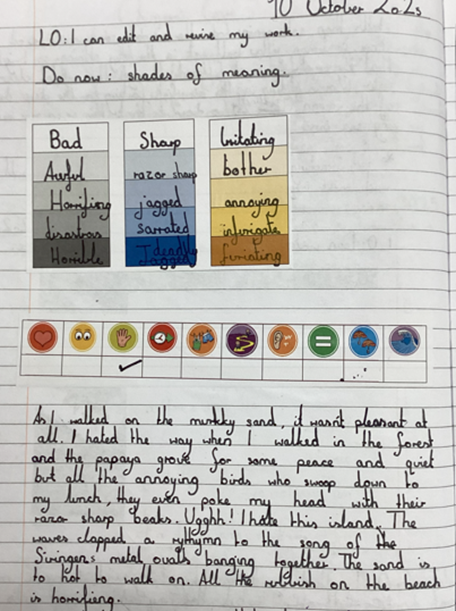 10 October 2025
LO: I can edit and revise my work.
Do now: shades of meaning.
Bad
Awful
Horrifing
disastros
Horrible
Sharp
razor sharp
jagged
sarrated
deadly
Jagged
Irritating
bother
annoying
infurigate
furiating
As I walked on the murkky sand, it wasn't pleasant at
all. I hated the way when I walked in the forest
and the papaya grove for some peace and quiet
but all the annoying birds who swoop down to
my lunch, they even poke my head with their
razor sharp beaks. Ugghh! I hate this island. The
waves clapped a rythymn to the song of the
Siringens metal ovals banging together. The sand is
to hot to walk on. All the rubbish on the beach
is horrifieng.